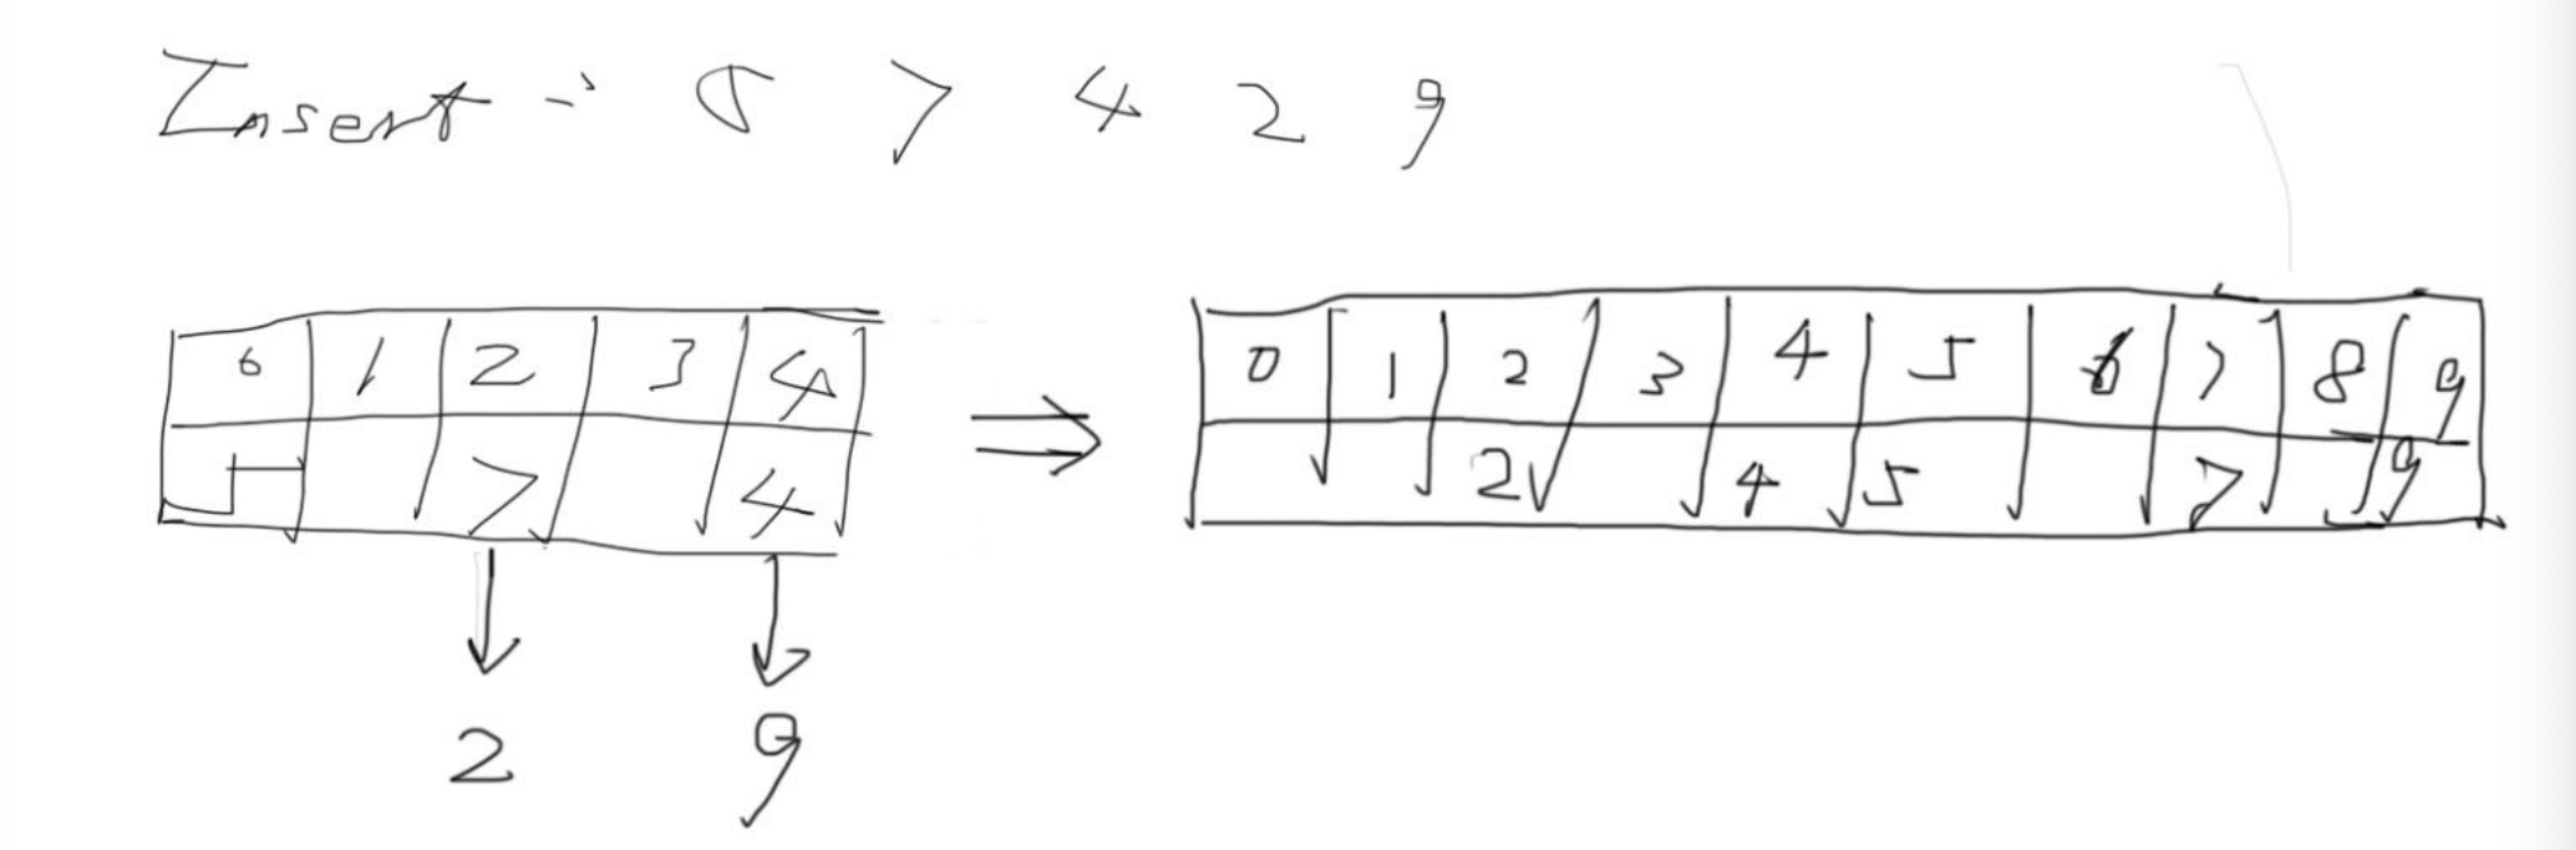 Insert - 5 7 4 2 9
0 1 2 3 4
5 7 4
2 9
0 1 2 3 4 5 6 7 8 9
2 4 5 7 9